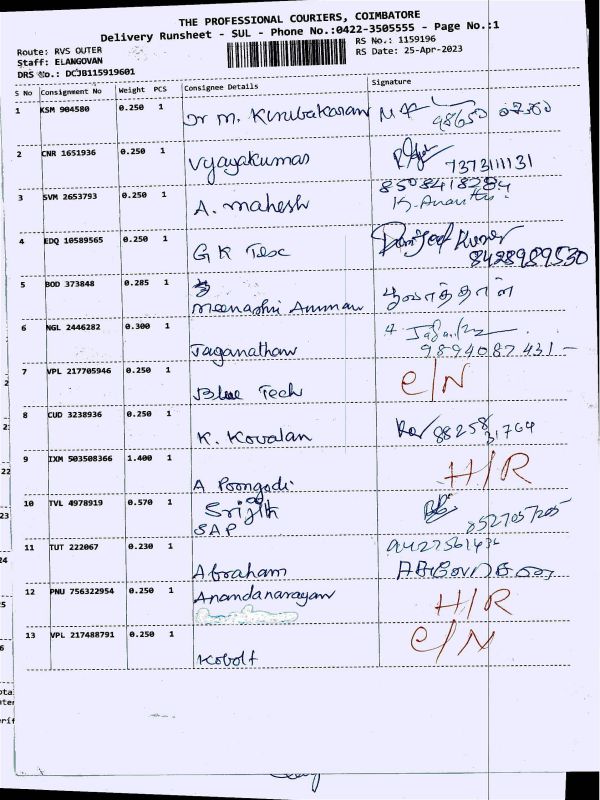 THE PROFESSIONAL COURIERS, COIMBATORE
Delivery Runsheet - SUL - Phone No.:0422-3505555 - Page No.:1
Route: RVS OUTER
RS No.: 1159196
Staff: ELANGOVAN
RS Date: 25-Apr-2023
DRS No.: DCJB115919601
S No Consignment No Weight PCS Consignee Details Signature
1 KSM 904580 0.250 1
Dr M. Kirubakaran
2 CNR 1651936 0.250 1
Vijayakumar 7373111131
3 SVM 2653793 0.250 1 8508418284
A. Mahesh
4 EDQ 10589565 0.250 1
GK Tesc 8428989530
5 BOD 373848 0.285 1
Meenashi Amman பூவாத்தாள்
6 NGL 2446282 0.300 1
Jaganathan 9894087431
7 VPL 217705946 0.250 1 C/N
Blue Tech
8 CUD 3238936 0.250 1
K. Kovalan 88258
9 IXM 503508366 1.400 1 H/R
A Poongodi
10 TVL 4978919 0.570 1
Srijith
SAP
11 TUT 222067 0.230 1
Abraham
12 PNU 756322954 0.250 1 Anandanarayan H/R
13 VPL 217488791 0.250 1 C/N
Kobolt